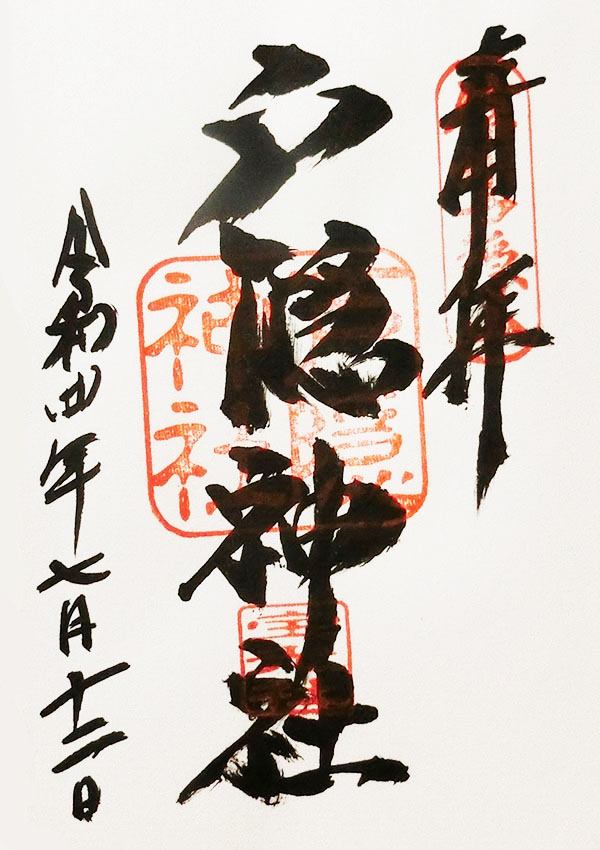 奉拝
戸隠神社
戸隠
神社
令和四年七月十二日